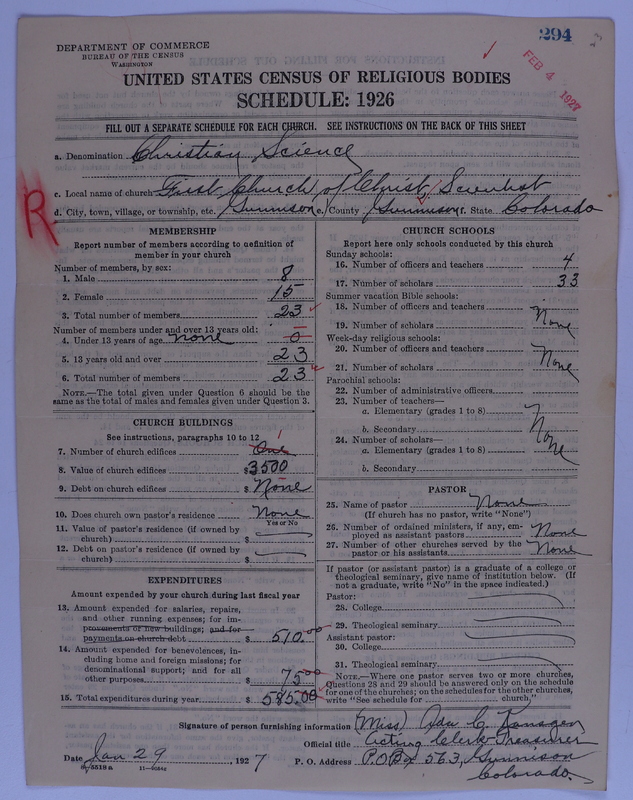 294
DEPARTMENT OF COMMERCE
BUREAU OF THE CENSUS
WASHINGTON
FEB 4 1927
UNITED STATES CENSUS OF RELIGIOUS BODIES
SCHEDULE: 1926
FILL OUT A SEPARATE SCHEDULE FOR EACH CHURCH. SEE INSTRUCTIONS ON THE BACK OF THIS SHEET
a. Denomination Christian Science
R
c. Local name of church First Church of Christ, Scientist
d. City, town, village, or township, etc. Gunnison e. County Gunnison f. State Colorado
MEMBERSHIP
Report number of members according to definition of
member in your church
Number of members, by sex:
1. Male 8
2. Female 15
3. Total number of members 23
Number of members under and over 13 years old:
4. Under 13 years of age none 0
5. 13 years old and over 23
6. Total number of members 23
NOTE.—The total given under Question 6 should be
same as the total of males and females given under Question 3.
CHURCH BUILDINGS
See instructions, paragraphs 10 to 12
7. Number of church edifices One 1
8. Value of church edifices $3500
9. Debt on church edifices $ None
10. Does church own pastor's residence None
Yes or No
11. Value of pastor's residence (if owned by
church) $
12. Debt on pastor's residence (if owned by
church) $
EXPENDITURES
Amount expended by your church during last fiscal year
13. Amount expended for salaries, repairs,
and other running expenses; for im-
provements or new buildings; and for
payments on church debt $ 510.00
14. Amount expended for benevolences, in-
cluding home and foreign missions; for
denominational support; and for all
other purposes $ 75.00
15. Total expenditures during year $ 585.00
CHURCH SCHOOLS
Report here only schools conducted by this church
Sunday schools:
16. Number of officers and teachers 4
17. Number of scholars 33
Summer vacation Bible schools:
18. Number of officers and teachers None
19. Number of scholars
Week-day religious schools:
20. Number of officers and teachers None
21. Number of scholars
Parochial schools:
22. Number of administrative officers
23. Number of teachers—
a. Elementary (grades 1 to 8) None
b. Secondary
24. Number of scholars—
a. Elementary (grades 1 to 8)
b. Secondary
PASTOR
25. Name of pastor None
(If church has no pastor, write "None")
26. Number of ordained ministers, if any, em-
ployed as assistant pastors None
27. Number of other churches served by the
pastor or his assistants None
If pastor (or assistant pastor) is a graduate of a college or
theological seminary, give name of institution below. (If
not a graduate, write "No" in the space indicated.)
Pastor:
28. College
29. Theological seminary
Assistant pastor:
30. College
31. Theological seminary
NOTE.—Where one pastor serves two or more churches,
Questions 28 and 29 should be answered only on the schedule
for one of the churches; on the schedules for the other churches,
write "See schedule for church."
Signature of person furnishing information (Miss) Ada C.
Official title Acting Clerk-Treasurer
Date Jan 29, 1927 P. O. Address P.O. Box 563, Gunnison
Colorado.